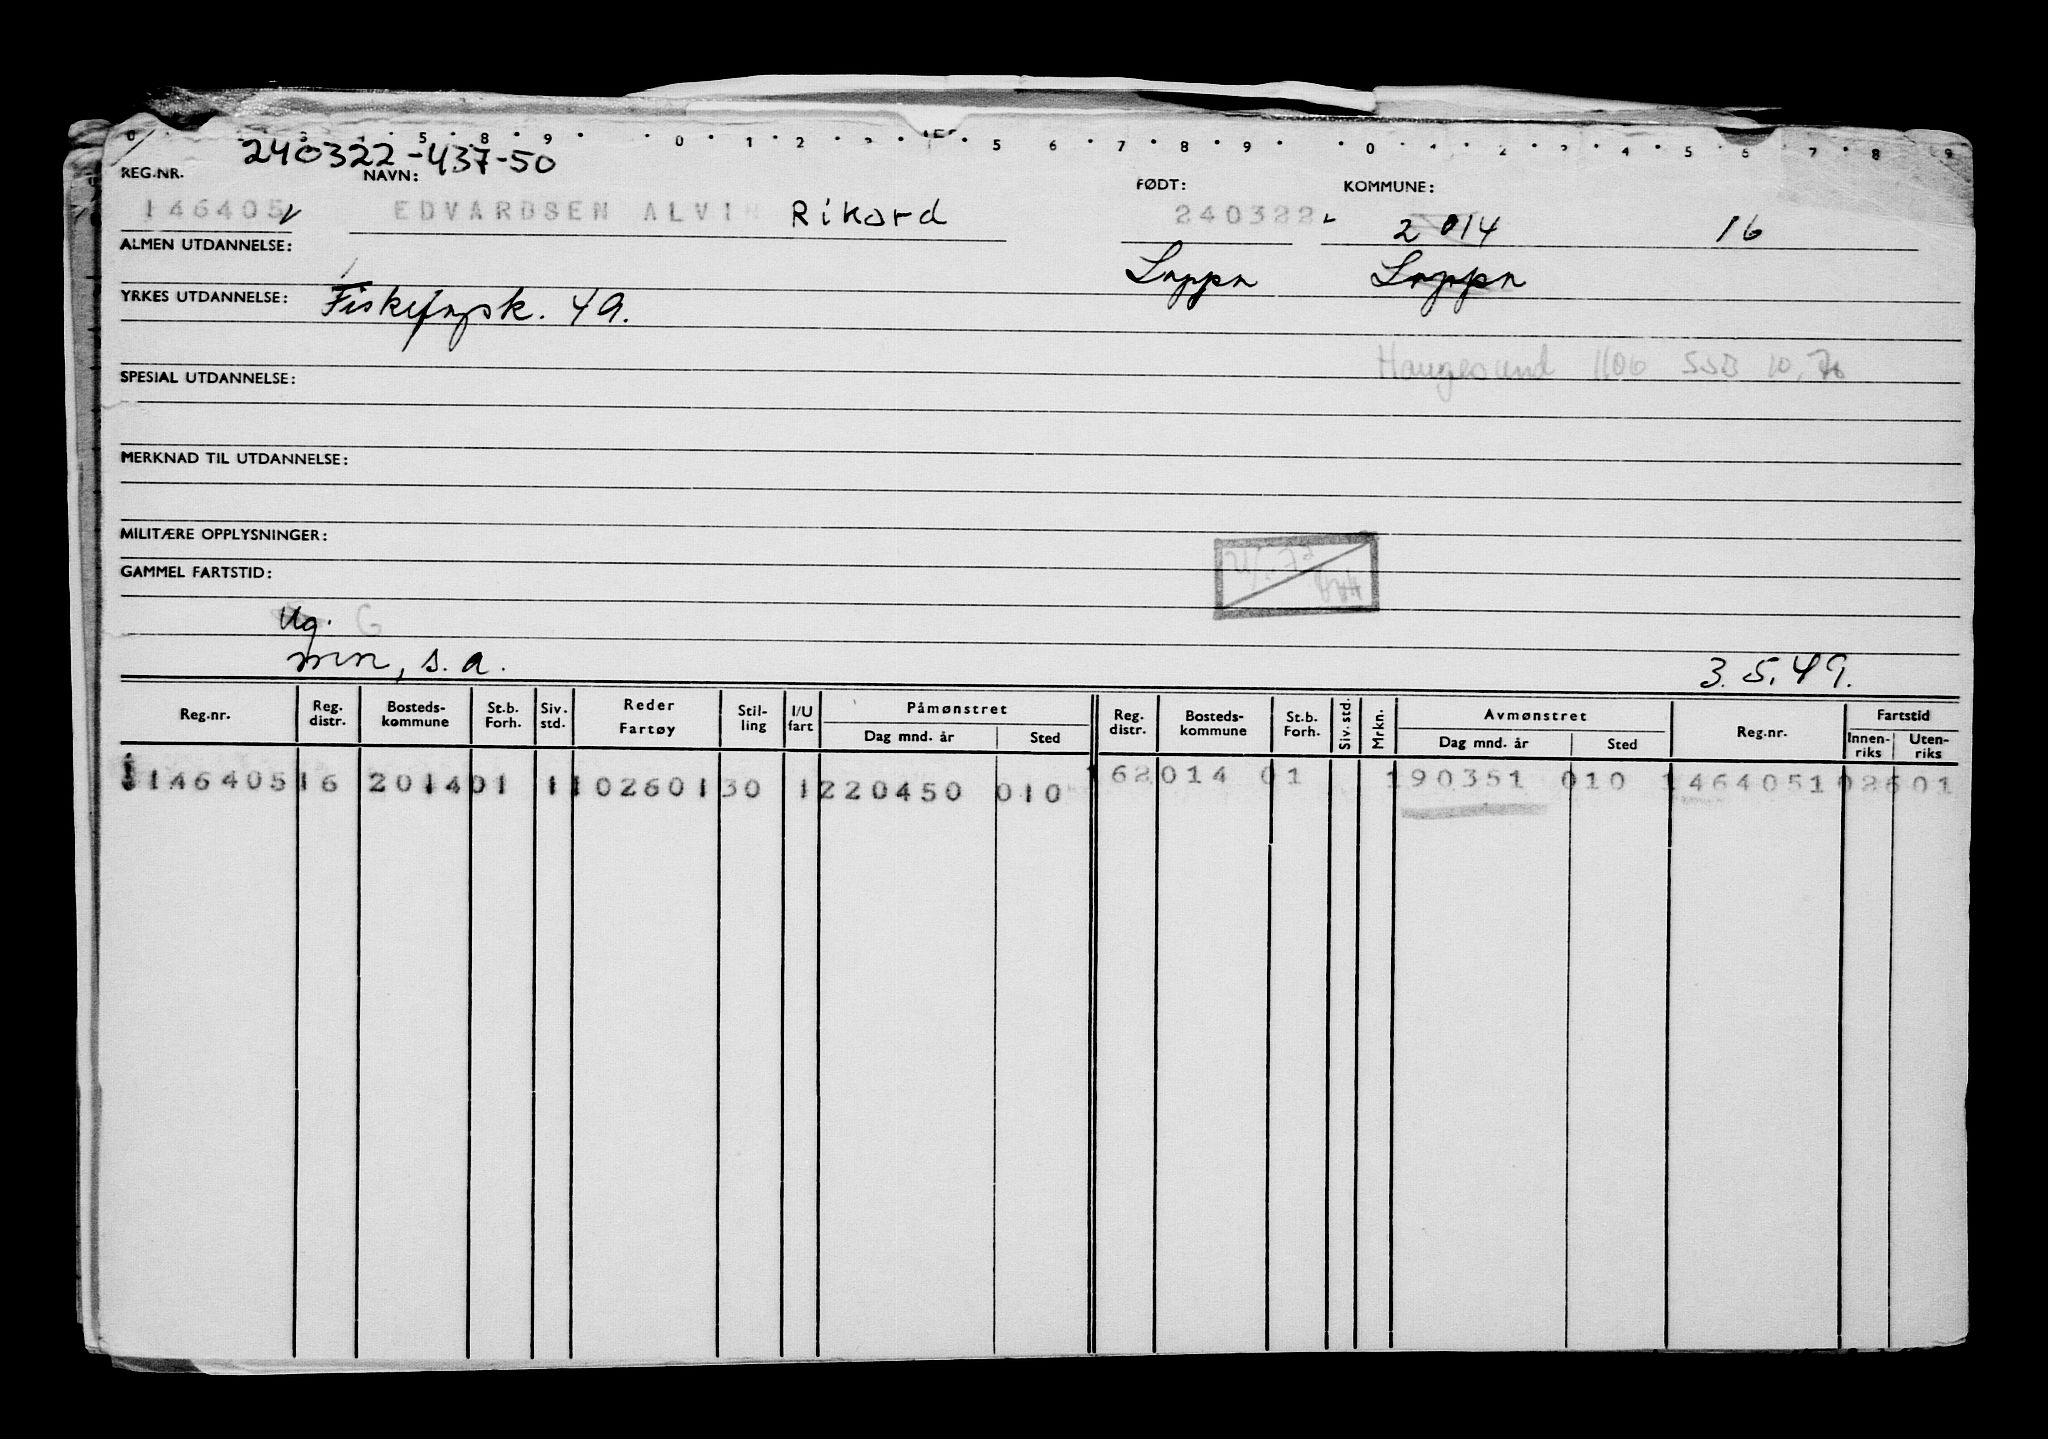 240322-437-50
REG.NR. NAVN: FØDT: KOMMUNE:
146405 EDVARDSEN ALVIN Rikard 240322 2014 16
ALMEN UTDANNELSE: Loppa Loppa
YRKES UTDANNELSE: Fiskefagsk. 49.
Haugesund 1106 SSB 10.70
SPESIAL UTDANNELSE:
MERKNAD TIL UTDANNELSE:
MILITÆRE OPPLYSNINGER:
GAMMEL FARTSTID:
Ug. G
mm, s.a. 3.5.49.
Reg.nr. Reg. distr. Bosteds- kommune St.b. Forh. Siv. std. Reder Fartøy Stil- ling I/U fart Påmønstret Dag mnd. år Sted Reg. distr. Bosteds- kommune St.b. Forh. Siv. std. Mrkn. Avmønstret Dag mnd. år Sted Reg.nr. Fartstid Innen- riks Uten- riks
146405 16 2014 01 1 10260130 1 220450 010 162014 01 190351 010 146405102601